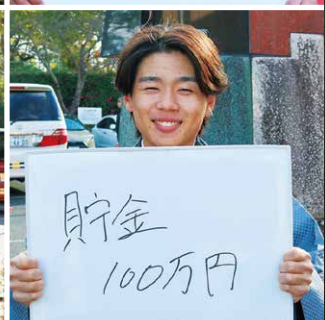 貯金
100万円